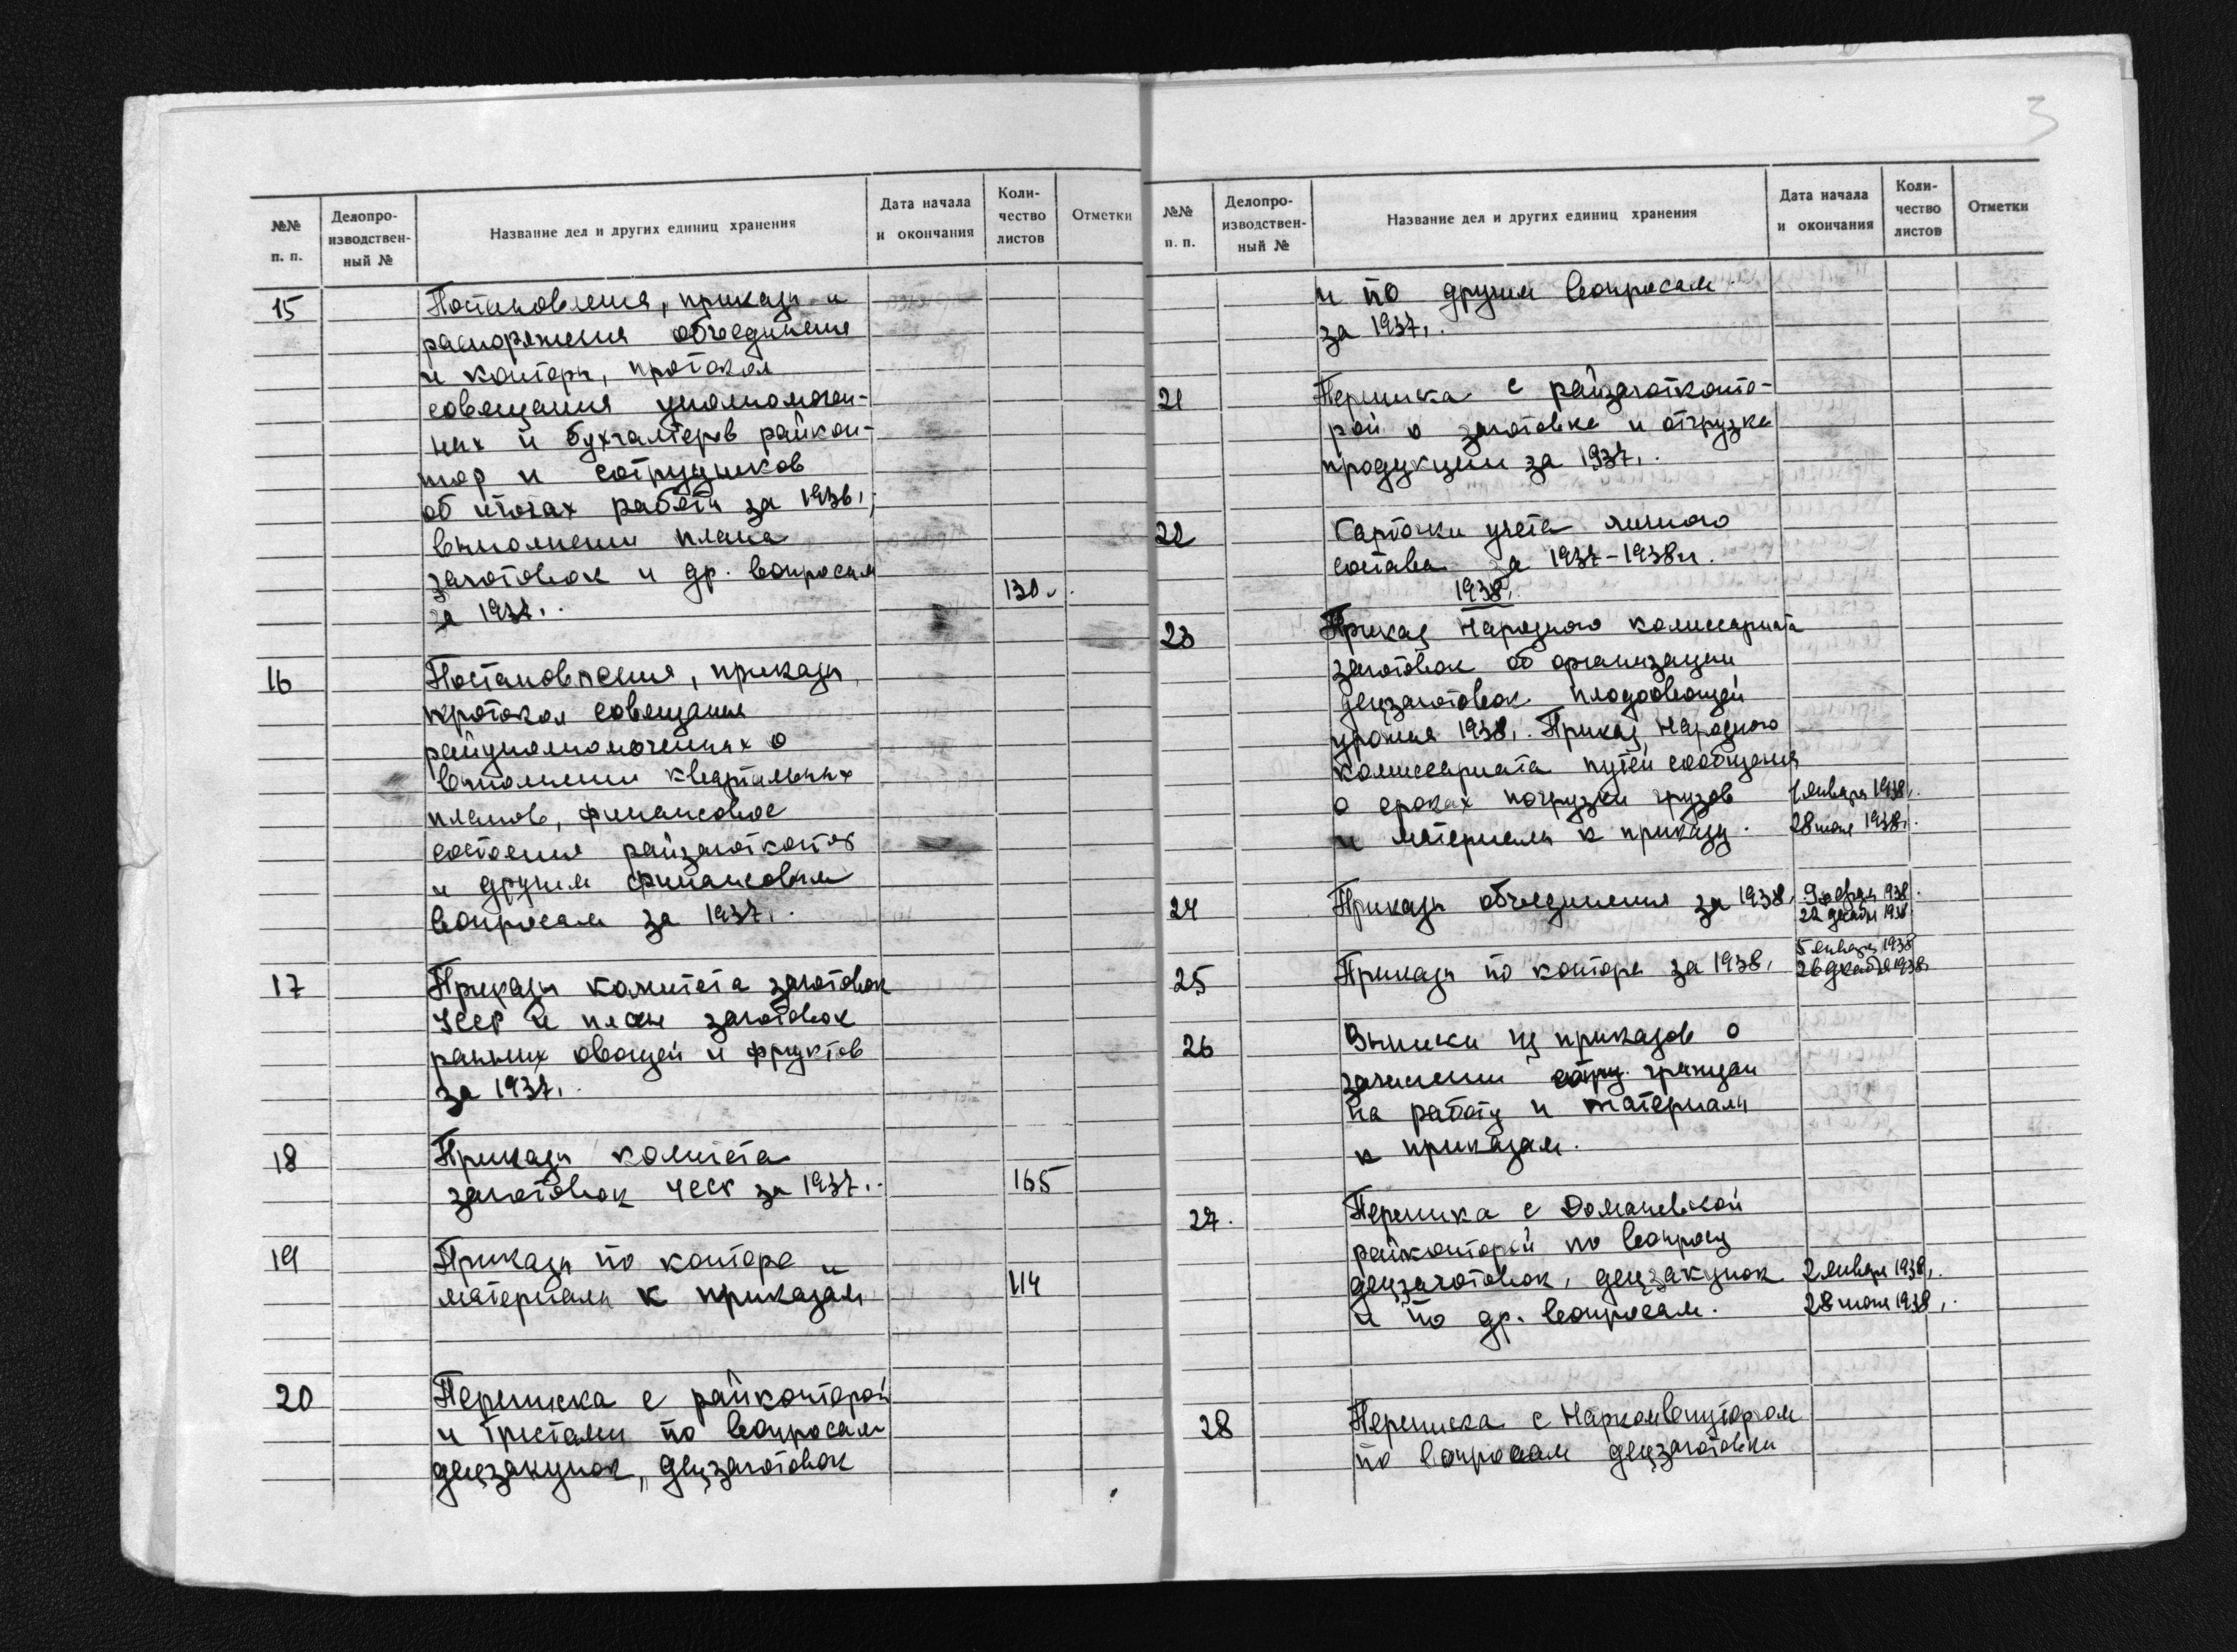 №№ п. п.
Делопро-
изводствен-
ный №
Название дел и других единиц хранения
Дата начала
и окончания
Коли-
чество
листов
Отметки
15
Постановления, приказы и
распоряжения объединения
и конторы, протокол
совещания уполномочен-
ных и бухгалтеров райкон-
тор и сотрудников
об итогах работы за 1936г.,
выполнении плана
заготовок и др. вопросам
за 1937г.
130
16
Постановления, приказы,
протокол совещания
райуполномоченных о
выполнении квартальных
планов, финансовое
состояния райзаготконтор
и другим финансовым
вопросам за 1937г.
17
Приказы комитета заготовок
УССР и план заготовок
ранних овощей и фруктов
за 1937г.
18
Приказы комитета
заготовок за 1937г.
165
19
Приказы по конторе и
материалы к приказам
114
20
Переписка с райконторой
и трестами по вопросам
децзакупок, децзаготовок
3
№№
п. п.
Делопро-
изводствен-
ный №
Название дел и других единиц хранения
Дата начала
и окончания
Коли-
чество
листов
Отметки
и по другим вопросам
за 1937г.
21
Переписка с райзаготконто-
рой о заготовке и отгрузке
продукции за 1937г.
22
Карточки учета личного
состава за 1937-1938гг.
1938г.
23
Приказ Народного комиссариата
заготовок об организации
децзаготовок плодоовощей
урожая 1938г. Приказ Народного
комиссариата путей сообщения
о сроках погрузки грузов
1 января 1938г.
и материалы к приказу.
28 мая 1938г.
24
Приказы объединения за 1938г.
9 февр 1938
22 декабр 1938
25
Приказы по конторе за 1938г.
5 января 1938
26 декабря 1938
26
Выписки из приказов о
зачислении граждан
на работу и материалы
к приказам.
27.
Переписка с Доманевской
райконторой по вопросу
децзаготовок, децзакупок
2 января 1938г.
и по др. вопросам.
28 мая 1938г.
28
Переписка с Наркомвнуторгом
по вопросам децзаготовки